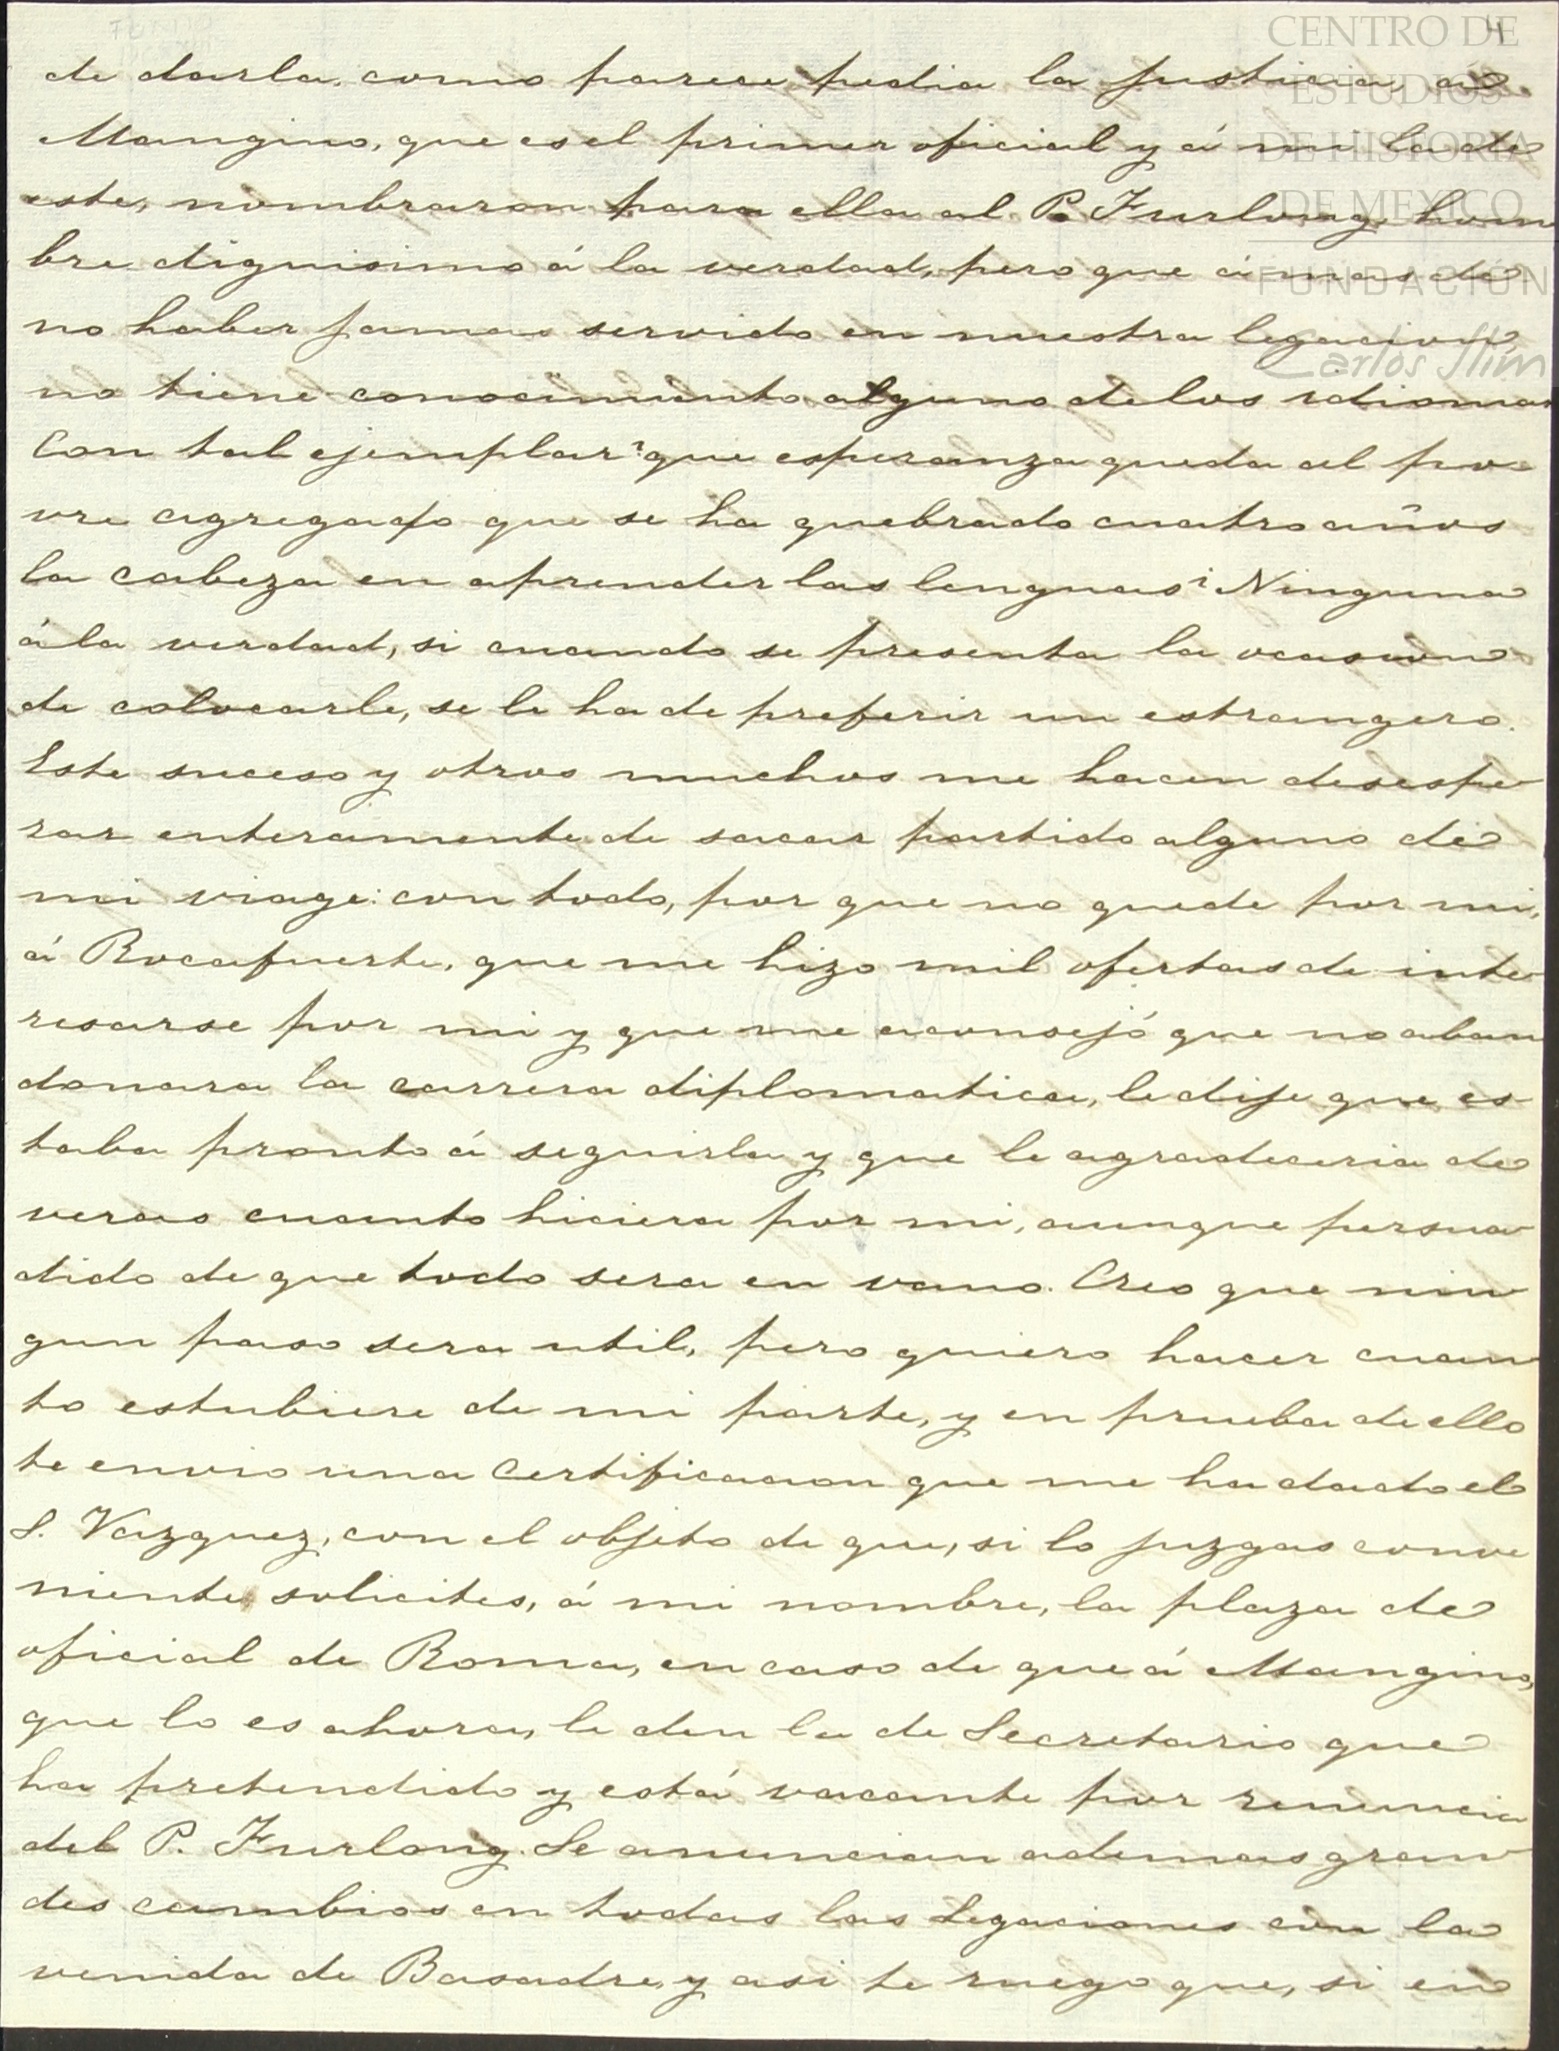 4
CENTRO DE
ESTUDIOS
DE HISTORIA
DE MEXICO
FUNDACIÓN
Carlos Slim
de darla, como parece pedia la justicia, a
Mangino, que es el primer oficial y á mi la de
este, nombraron para ella al P. Furlong, hom
bre dignisimo á la verdad, pero que á mas de
no haber jamas servido en nuestra legacion,
no tiene conocimiento alguno de los idiomas
Con tal ejemplar ¿que esperanza queda al po-
vre agregado que se ha quebrado cuatro años
la cabeza en aprender las lenguas? Ninguna
á la verdad, si cuando se presenta la ocasion
de colocarle, se le ha de preferir un estrangero.
Este suceso y otros muchos me hacen desespe
rar enteramente de sacar partido alguno de
mi viage: con todo, por que no quede por mi,
á Rocafuerte, que me hizo mil ofertas de inte
resarse por mi y que me aconsejó que no aban
donara la carrera diplomatica, le dije que es
taba pronto á seguirla y que le agradeceria de
veras cuanto hiciera por mi, aunque persua
dido de que todo sera en vano. Creo que nin
gun paso sera util, pero quiero hacer cuan
to estubiere de mi parte, y en prueba de ello
te envio una certificacion que me ha dado el
S. Vazquez, con el objeto de que, si lo juzgas conve
niente, solicites, á mi nombre, la plaza de
oficial de Roma, en caso de que á Mangino,
que lo es ahora, le den la de Secretario que
ha pretendido y está vacante por renuncia
del P. Furlong. Se anuncian ademas gran
des cambios en todas las Legaciones con la
venida de Basadre, y asi te ruego que, si en